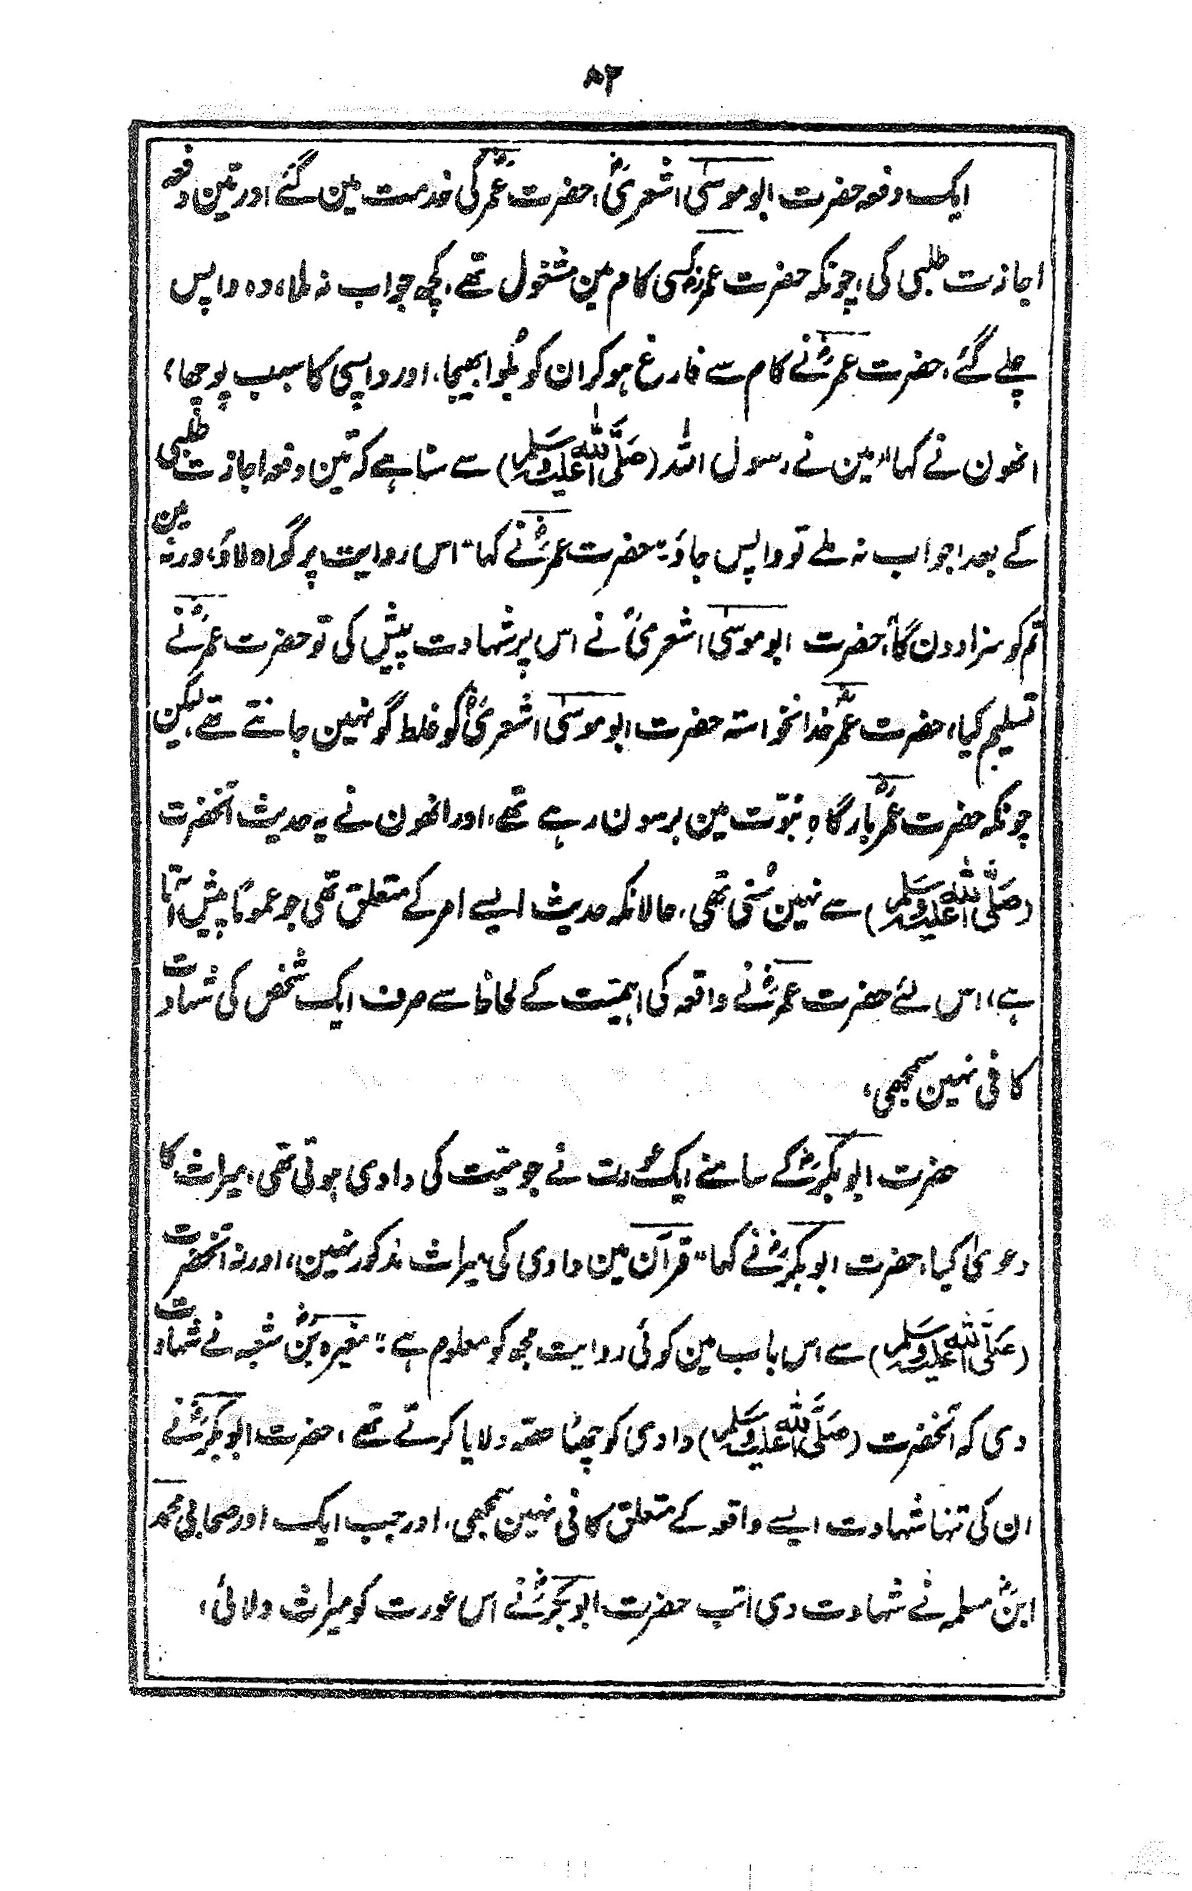 ۸۲
ایک دفعہ حضرت ابو موسیٰ اشعریؓ، حضرت عمرؓ کی خدمت مین گئے اور تین دفعہ
اجازت طلبی کی، چونکہ حضرت عمرؓ کسی کام مین مشغول تھے، کچھ جواب نہ ملا، وہ واپس
چلے گئے، حضرت عمرؓ نے کام سے فارغ ہو کر ان کو بُلوا بھیجا، اور واپسی کا سبب پوچھا،
انھون نے کہا "مین نے رسول اللہ (صَلَّی اللہ علیہ وسلم) سے سنا ہے کہ تین دفعہ اجازت طلبی
کے بعد اجواب نہ ملے تو واپس جاؤ۔" حضرت عمرؓ نے کہا "اس روایت پر گواہ لاؤ، ورنہ مین
تم کو سزا دون گا"، حضرت ابو موسیٰ اشعریؓ نے اس پر شہادت پیش کی تو حضرت عمرؓ نے
تسلیم کیا، حضرت عمرؓ خدانخواستہ حضرت ابو موسیٰ اشعریؓ کو غلط گو نہین جانتے تھے، لیکن
چونکہ حضرت عمرؓ بارگاہِ نبوّت مین برسون رہے تھے، اور انھون نے یہ حدیث آنحضرت
(صَلَّی اللہ علیہ وسلم) سے نہین سُنی تھی، حالانکہ حدیث ایسے امر کے متعلق تھی جو عموماً پیش آتا
ہے، اس لئے حضرت عمرؓ نے واقعہ کی اہمیّت کے لحاظ سے صرف ایک شخص کی شہادت
کافی نہین سمجھی،
حضرت ابو بکرؓ کے سامنے ایک عورت نے جو میّت کی دادی ہوتی تھی، میراث کا
دعویٰ کیا، حضرت ابو بکرؓ نے کہا "قرآن مین دادی کی میراث مذکور نہین، اور نہ آنحضرت
(صَلَّی اللہ علیہ وسلم) سے اس باب مین کوئی روایت مجھ کو معلوم ہے:" مغیرہؓ بن شعبہ نے شہادت
دی کہ آنحضرت (صَلَّی اللہ علیہ وسلم) دادی کو چھٹا حصّہ دلایا کرتے تھے، حضرت ابو بکرؓ نے
ان کی تنہا شہادت ایسے واقعہ کے متعلق کافی نہین سمجھی، اور جب ایک اور صحابی محمد
ابنؓ مسلمہ نے شہادت دی اتب حضرت ابو بکرؓ نے اس عورت کو میراث دلائی،